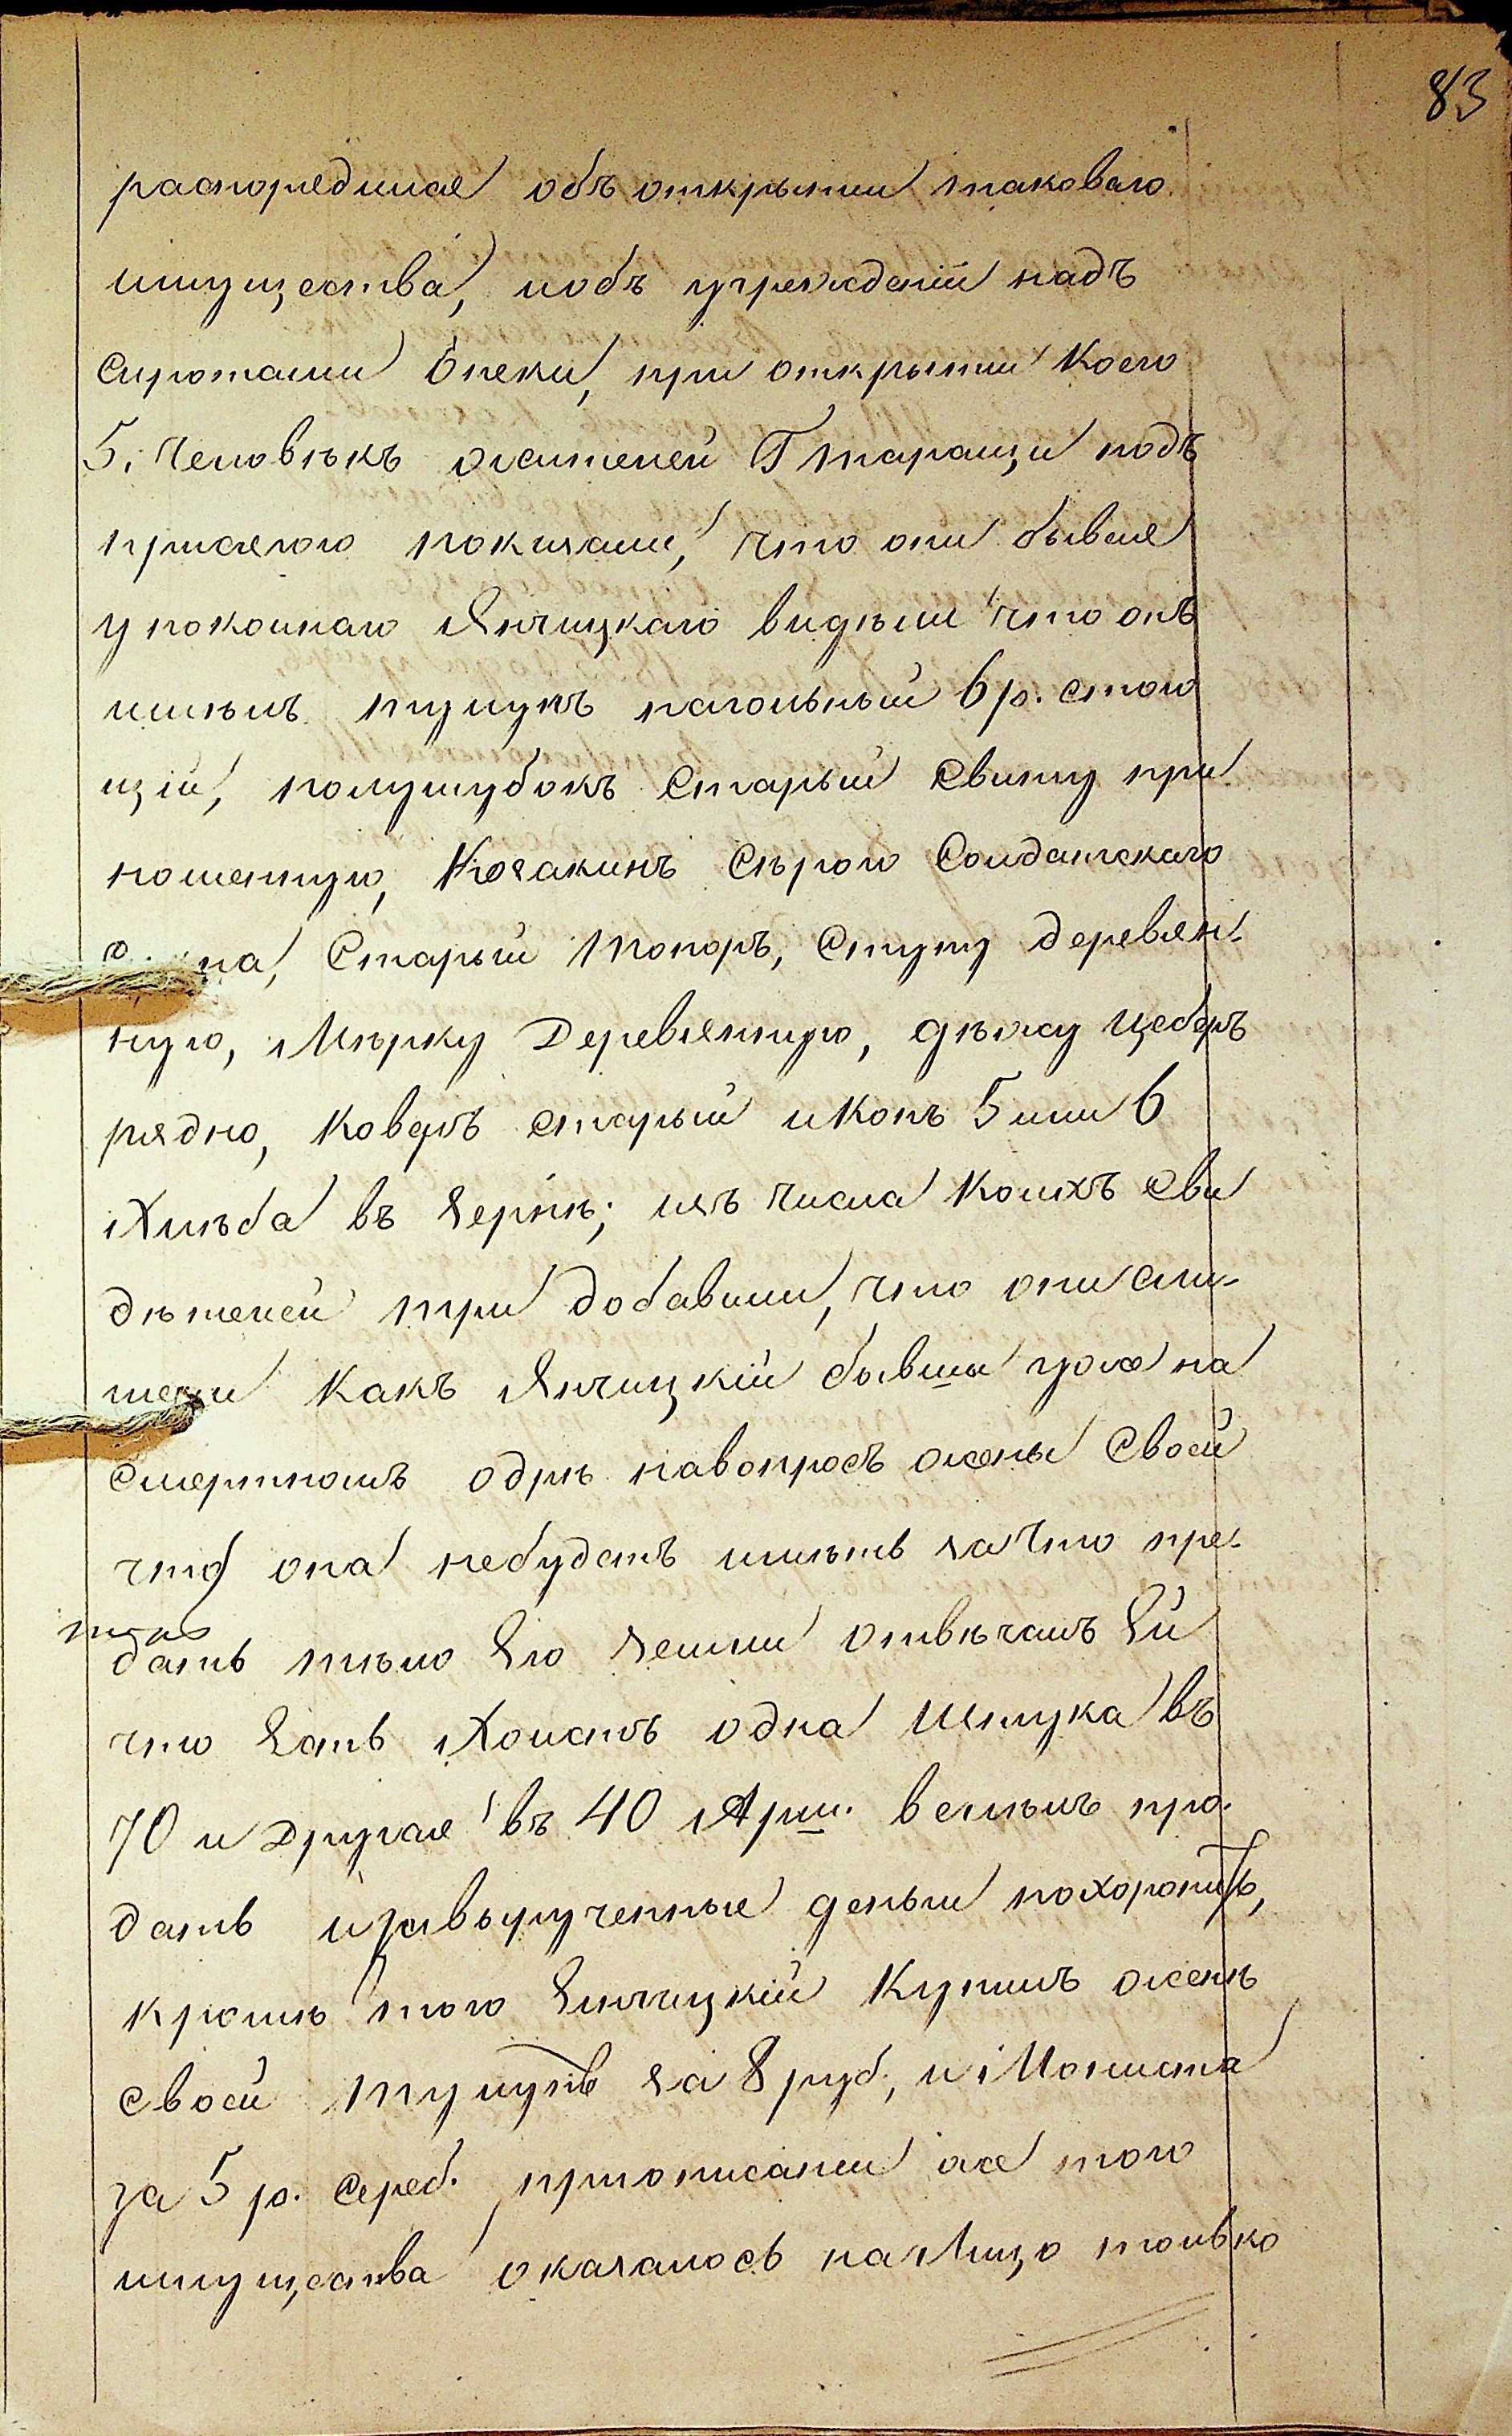 83
распорядилая объ открытии таковаго
имущества, иобъ учрежденіи надъ
Сиротами Опеки, при открытии Коего
5. Человѣкъ жителей Г Таращи подъ
присягою показали, что они бывая
у покойнаго Янчицкаго видѣли что онъ
имѣлъ тулупъ нагольный 6 р. стою
щій, полушубокъ Старый Свиту при
ношенную, Козакинъ Сѣрого Солдатскаго
на, Старый топоръ, Ступу деревян.
ную, Мѣрку Деревянную, дѣжу цеберъ
рядно, Коверъ старый иКопъ 5 или 6
Хлѣба въ Зернѣ; изъ числа Коихъ Сви
дѣтелей три добавили, что они слы-
шали Какъ Янчицкій бывши уже на
Смертномъ одрѣ навопросъ жены Своей
что она небудетъ имѣть зачто пре.
дать тѣло Его Земли отвѣчалъ Ей
что Есть Холстъ одна Штука въ
70 и Другая въ 40 Арш. велѣлъ про.
дать изавырученные деньги похоронить,
кромѣ того Янчицкій Купилъ женѣ
Своей тулупъ за 8 руб., и Мониста
за 5 р. Сереб. приописании же того
имущества оказалось наЛицо только